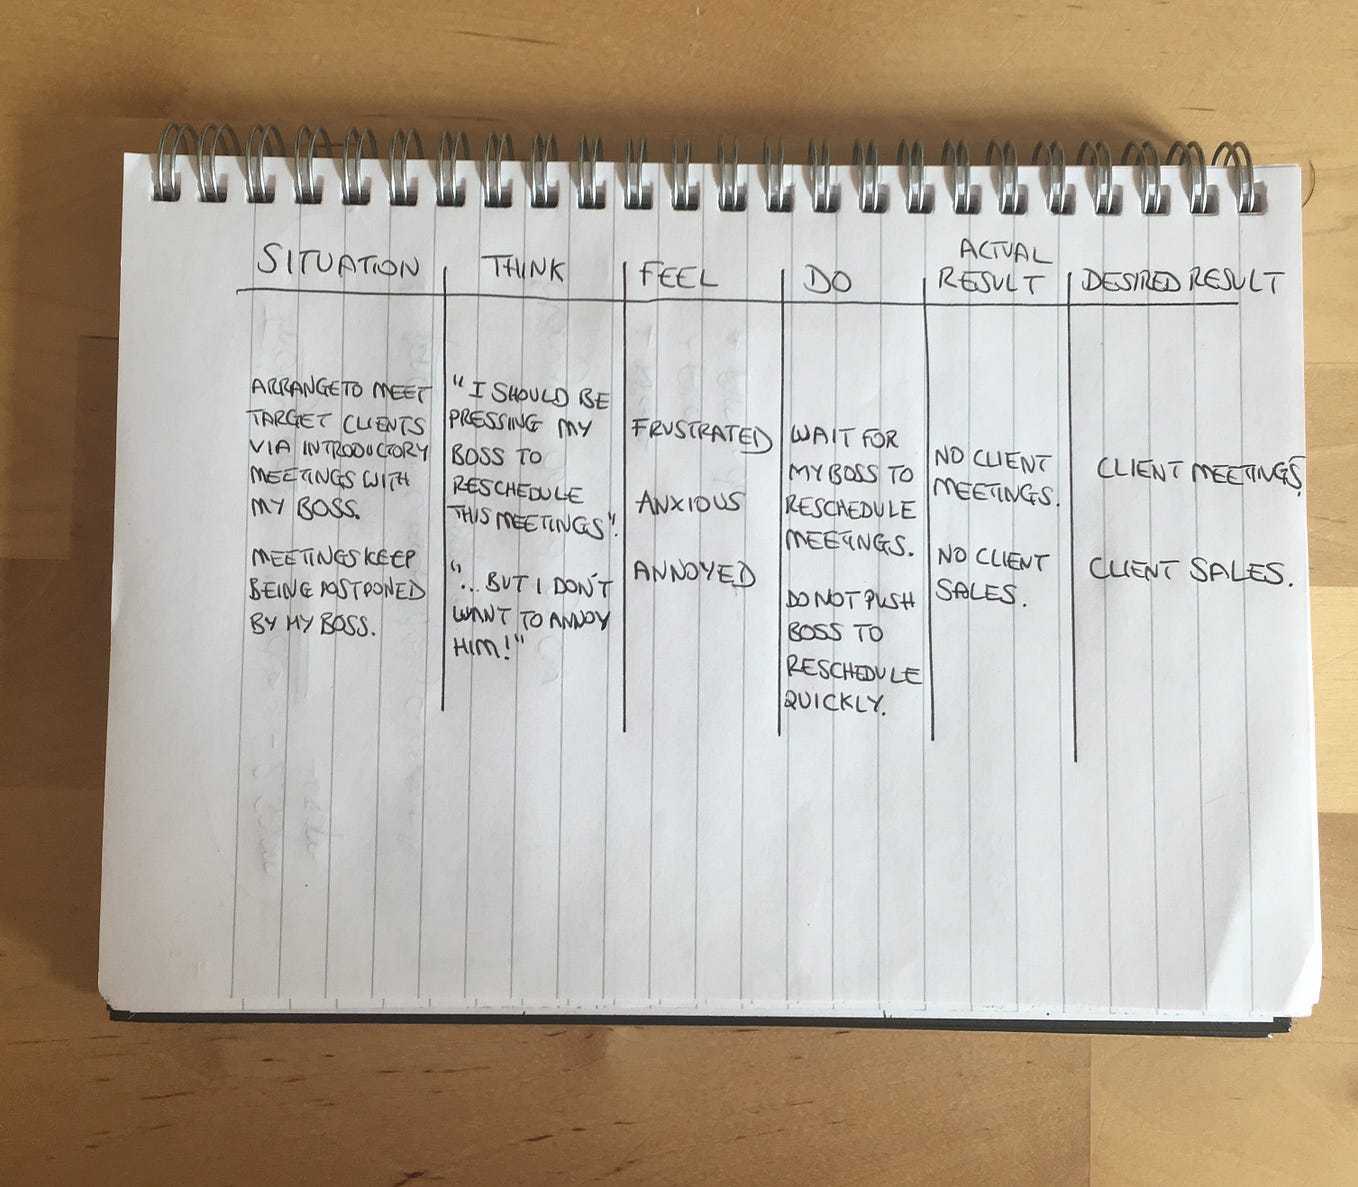 SITUATION
THINK
FEEL
DO
ACTUAL
RESULT
DESIRED RESULT
ARRANGE TO MEET
TARGET CLIENTS
VIA INTRODUCTORY
MEETINGS WITH
MY BOSS.
MEETINGS KEEP
BEING POSTPONED
BY MY BOSS.
"I SHOULD BE
PRESSING MY
BOSS TO
RESCHEDULE
THIS MEETINGS".
"...BUT I DON'T
WANT TO ANNOY
HIM!"
FRUSTRATED
ANXIOUS
ANNOYED
WAIT FOR
MY BOSS TO
RESCHEDULE
MEETINGS.
DO NOT PUSH
BOSS TO
RESCHEDULE
QUICKLY.
NO CLIENT
MEETINGS.
NO CLIENT
SALES.
CLIENT MEETINGS.
CLIENT SALES.